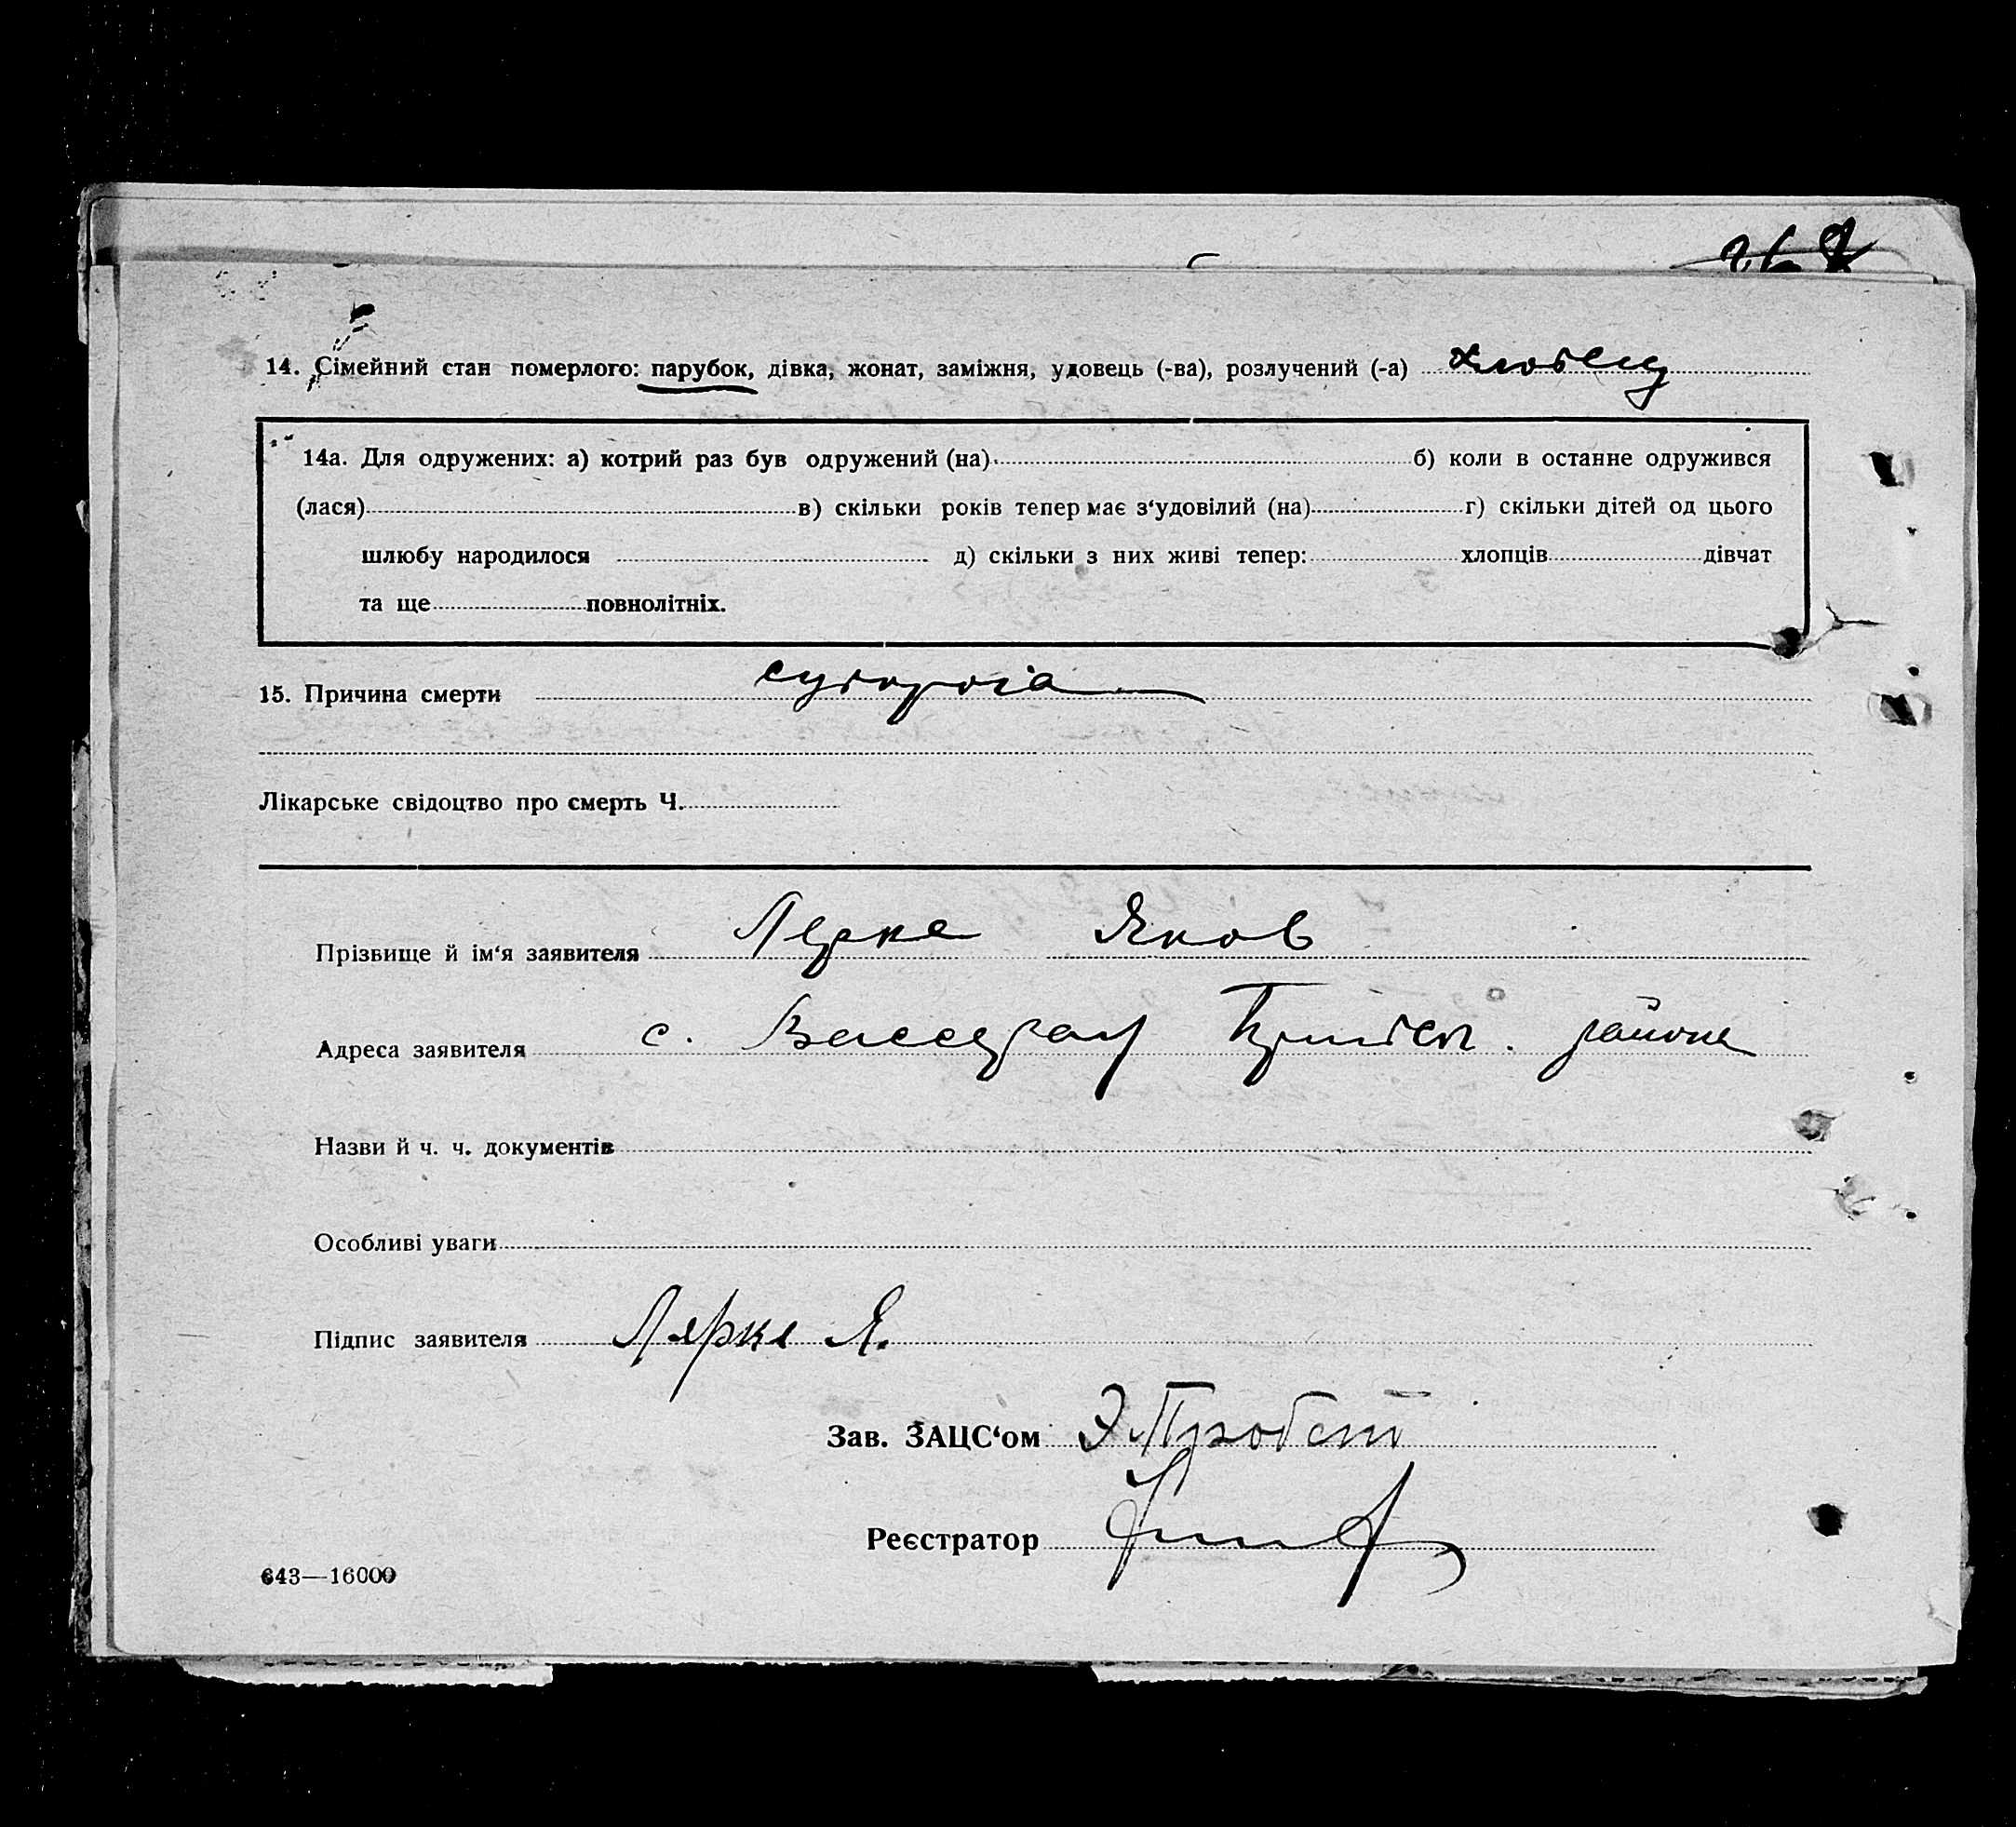 14. Сімейний стан померлого: парубок, дівка, жонат, заміжня, удовець (-ва), розлучений (-а)
14а. Для одружених: а) котрий раз був одружений (на) б) коли в останнє одружився
(лася) в) скільки років тепер має з‘удовілий (на) г) скільки дітей од цього
шлюбу народилося д) скільки з них живі тепер: хлопців дівчат
та ще повнолітніх.
15. Причина смерти судорога
Лікарське свідоцтво про смерть Ч.
Прізвище й ім‘я заявителя Лерке Яков
Адреса заявителя с. района
Назви й ч. ч. документів
Особливі уваги
Підпис заявителя Лярке Я.
Зав. ЗАЦС‘ом Э. Пробст
Реєстратор
643—16000